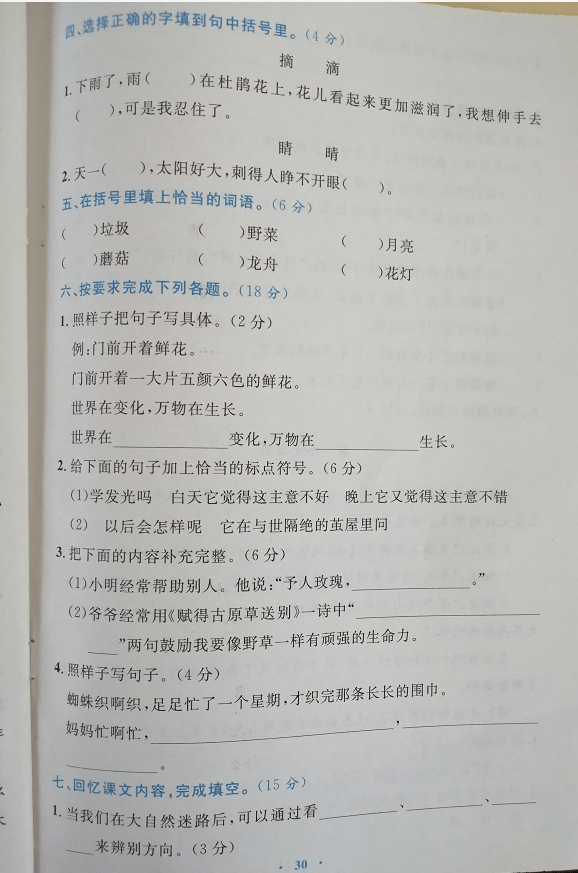 四、选择正确的字填到句中括号里。(4分)
摘 滴
1.下雨了,雨( )在杜鹃花上,花儿看起来更加滋润了,我想伸手去
( ),可是我忍住了。
睛 晴
2.天一( ),太阳好大,刺得人睁不开眼( )。
五、在括号里填上恰当的词语。(6分)
( )垃圾 ( )野菜 ( )月亮
( )蘑菇 ( )龙舟 ( )花灯
六、按要求完成下列各题。(18分)
1.照样子把句子写具体。(2分)
例:门前开着鲜花。
门前开着一大片五颜六色的鲜花。
世界在变化,万物在生长。
世界在____________变化,万物在____________生长。
2.给下面的句子加上恰当的标点符号。(6分)
(1)学发光吗 白天它觉得这主意不好 晚上它又觉得这主意不错
(2) 以后会怎样呢 它在与世隔绝的茧屋里问
3.把下面的内容补充完整。(6分)
(1)小明经常帮助别人。他说:“予人玫瑰,____________。”
(2)爷爷经常用《赋得古原草送别》一诗中“____________
____”两句鼓励我要像野草一样有顽强的生命力。
4.照样子写句子。(4分)
蜘蛛织啊织,足足忙了一个星期,才织完那条长长的围巾。
妈妈忙啊忙,____________,____________
____________。
七、回忆课文内容,完成填空。(15分)
1.当我们在大自然迷路后,可以通过看________、________、____
____来辨别方向。(3分)
· 30 ·